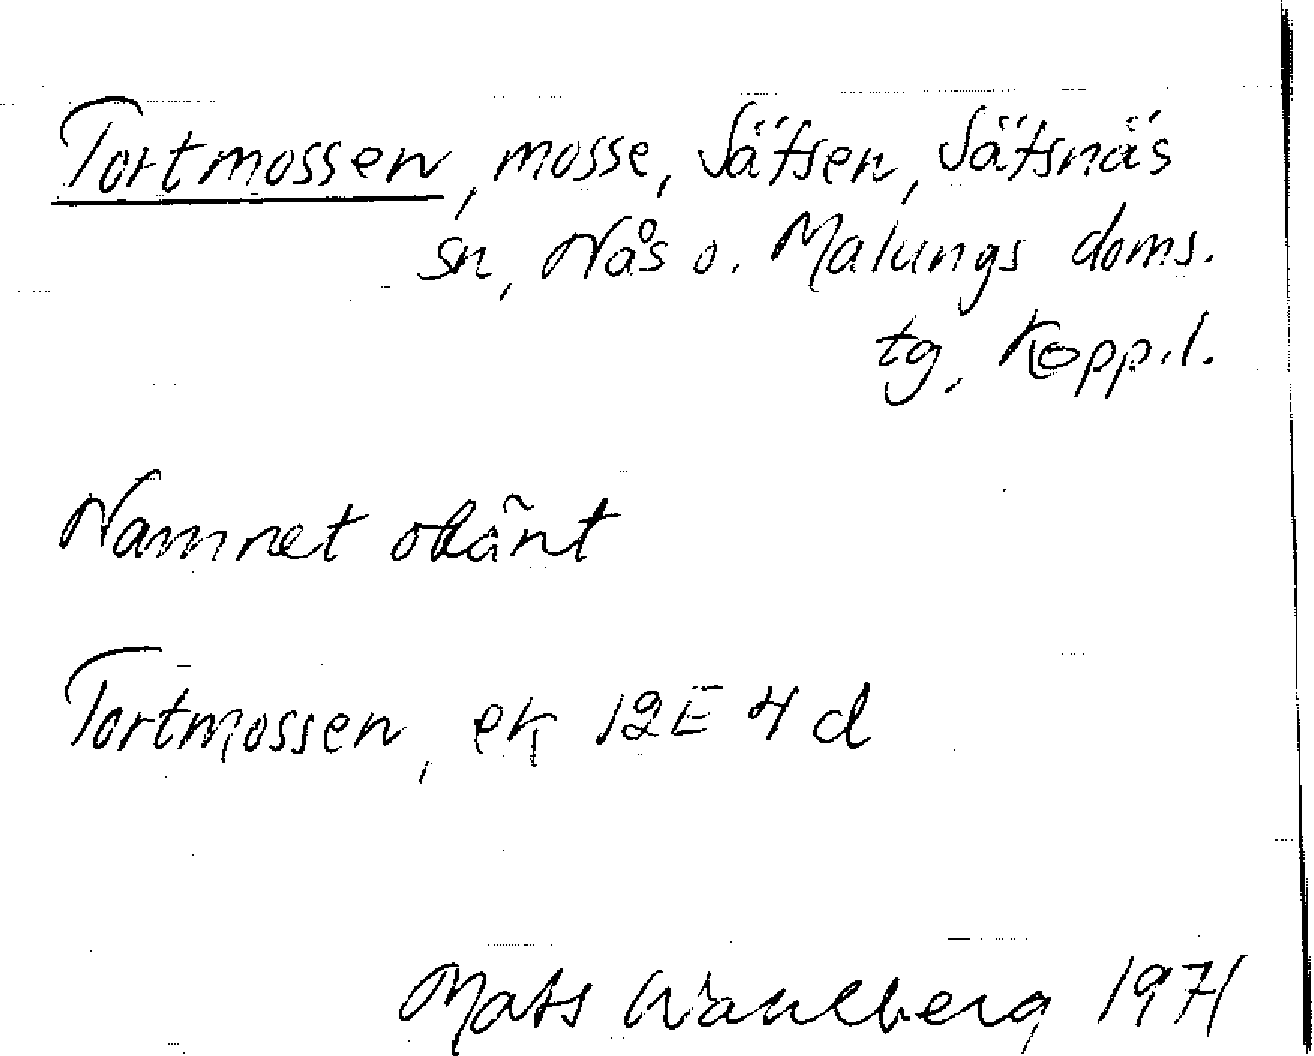 Tortmossen, mosse, Sätsen, Sätsnäs
sn, Nås o. Malungs doms.
tg, Kopp.l.
Namnet okänt
Tortmossen, ek 12E 4d
Mats Wahlberg 1971